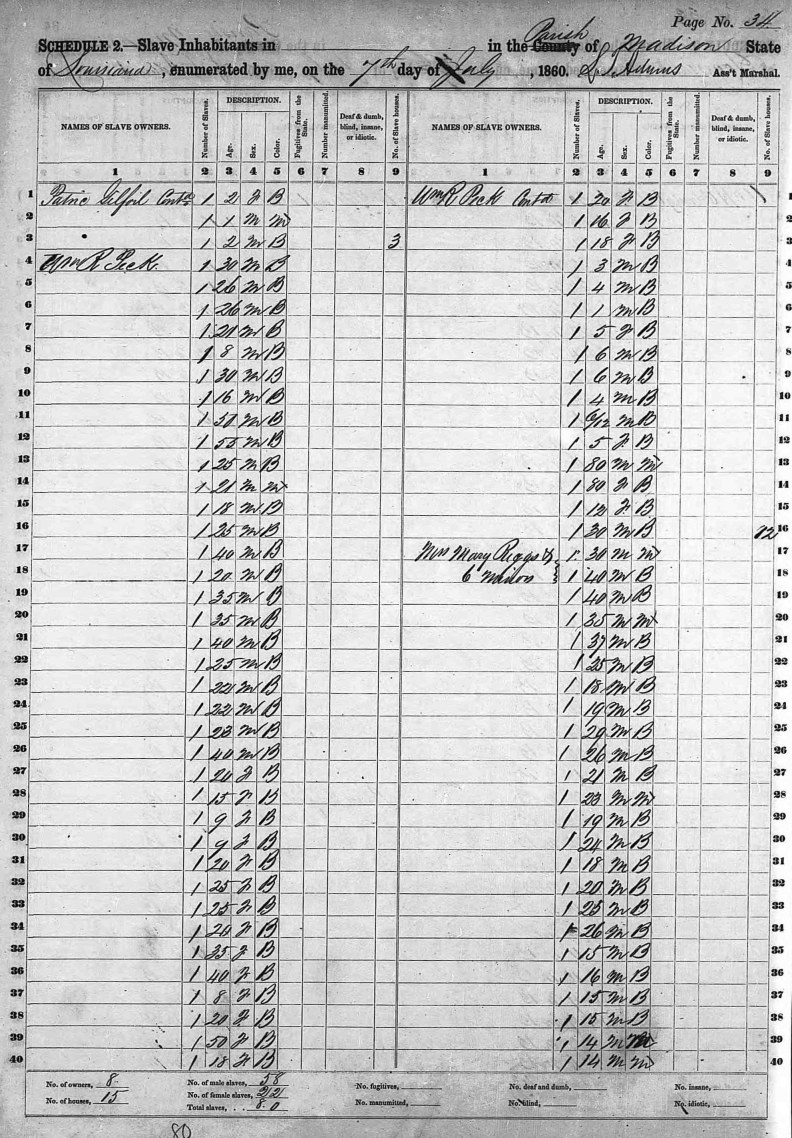 Page No. 34
SCHEDULE 2.—Slave Inhabitants in in the County Parish of Madison State
of Louisiana, enumerated by me, on the 7th day of July, 1860. Ass't Marshal.
NAMES OF SLAVE OWNERS. Number of Slaves. DESCRIPTION. Age. Sex. Color. Fugitives from the State. Number manumitted. Deaf & dumb, blind, insane, or idiotic. No. of Slave houses. NAMES OF SLAVE OWNERS. Number of Slaves. DESCRIPTION. Age. Sex. Color. Fugitives from the State. Number manumitted. Deaf & dumb, blind, insane, or idiotic. No. of Slave houses.
1 2 3 4 5 6 7 8 9 1 2 3 4 5 6 7 8 9
1 Patric Gilfoil Contd 1 2 F B Wm R Peck Contd 1 20 F B 1
2 1 1 M M 1 16 F B 2
3 1 2 M B 3 1 18 F B 3
4 Wm R Peck 1 30 M B 1 3 M B 4
5 1 26 M B 1 4 M B 5
6 1 26 M B 1 1 M B 6
7 1 21 M B 1 5 F B 7
8 1 8 M B 1 6 M B 8
9 1 30 M B 1 6 M B 9
10 1 16 M B 1 4 M B 10
11 1 50 M B 1 6/12 M B 11
12 1 55 M B 1 5 F B 12
13 1 25 M B 1 80 M M 13
14 1 21 M M 1 80 F B 14
15 1 18 M B 1 12 F B 15
16 1 25 M B 1 30 M B 12 16
17 1 40 M B Mrs Mary Riggs & 1 30 M M 17
18 1 20 M B 6 Minors 1 40 M B 18
19 1 35 M B 1 40 M B 19
20 1 35 M B 1 35 M M 20
21 1 40 M B 1 37 M B 21
22 1 25 M B 1 25 M B 22
23 1 22 M B 1 18 M B 23
24 1 22 M B 1 19 M B 24
25 1 23 M B 1 20 M B 25
26 1 40 M B 1 26 M B 26
27 1 20 F B 1 21 M B 27
28 1 15 F B 1 23 M M 28
29 1 9 F B 1 19 M B 29
30 1 9 F B 1 24 M B 30
31 1 20 F B 1 18 M B 31
32 1 25 F B 1 20 M B 32
33 1 25 F B 1 25 M B 33
34 1 20 F B 1 26 M B 34
35 1 35 F B 1 15 M B 35
36 1 40 F B 1 16 M B 36
37 1 8 F B 1 15 M B 37
38 1 20 F B 1 15 M B 38
39 1 50 F B 1 14 M M 39
40 1 18 F B 1 14 M M 40
No. of owners, 8 No. of male slaves, 58 No. fugitives, No. deaf and dumb, No. insane,
No. of houses, 15 No. of female slaves, 22 No. manumitted, No. blind, No. idiotic,
Total slaves, 80
80